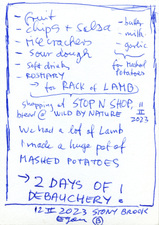 - Fruit
- chips + salsa
- MCC crackers
- Sour dough
- Soft drinks
- ROSEMARY
→ for RACK of LAMB
- butter
- milk
- garlic
for Mashed
Potatoes
shopping at STOP N SHOP,
bread @ WILD BY NATURE
II
2023
We had a lot of Lamb
I made a huge pot of
MASHED POTATOES
→ 2 DAYS OF
DEBAUCHERY!
12 II 2023 STONY BROOK